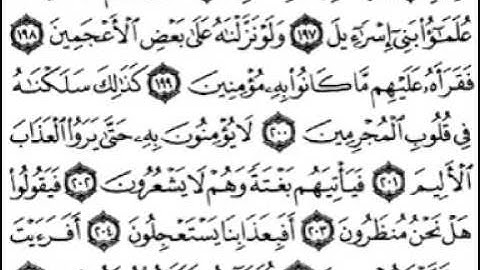 عُلَمَـٰٓؤُا۟ بَنِىٓ إِسْرَٰٓءِيلَ ١٩٧ وَلَوْ نَزَّلْنَـٰهُ عَلَىٰ بَعْضِ ٱلْأَعْجَمِينَ ١٩٨
فَقَرَأَهُۥ عَلَيْهِم مَّا كَانُوا۟ بِهِۦ مُؤْمِنِينَ ١٩٩ كَذَٰلِكَ سَلَكْنَـٰهُ
فِى قُلُوبِ ٱلْمُجْرِمِينَ ٢٠٠ لَا يُؤْمِنُونَ بِهِۦ حَتَّىٰ يَرَوُا۟ ٱلْعَذَابَ
ٱلْأَلِيمَ ٢٠١ فَيَأْتِيَهُم بَغْتَةً وَهُمْ لَا يَشْعُرُونَ ٢٠٢ فَيَقُولُوا۟
هَلْ نَحْنُ مُنظَرُونَ ٢٠٣ أَفَبِعَذَابِنَا يَسْتَعْجِلُونَ ٢٠٤ أَفَرَءَيْتَ